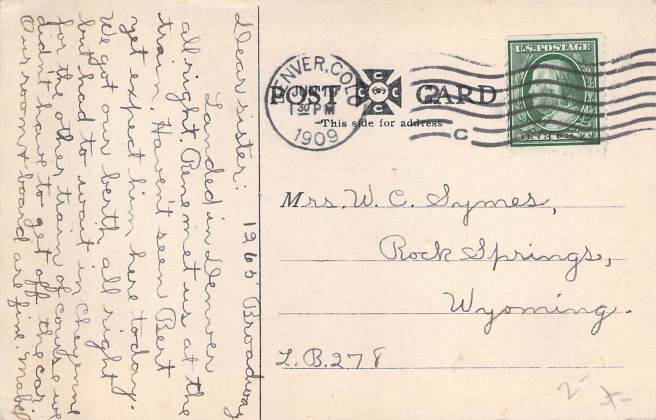 1265 Broadway
Dear sister:
Landed in Denver
all right. Rene met us at the
train. Haven't seen Bert
yet expect him here today.
We got our berth all right
but had to wait in Cheyenne
for the other train of course we
didn't have to get off the car
Our room & board are fine. Mabel
DENVER, COLO.
1 30 PM
1909
POST CARD
This side for address
U.S. POSTAGE
Mrs. W. C. Symes,
Rock Springs,
Wyoming.
L.B. 278